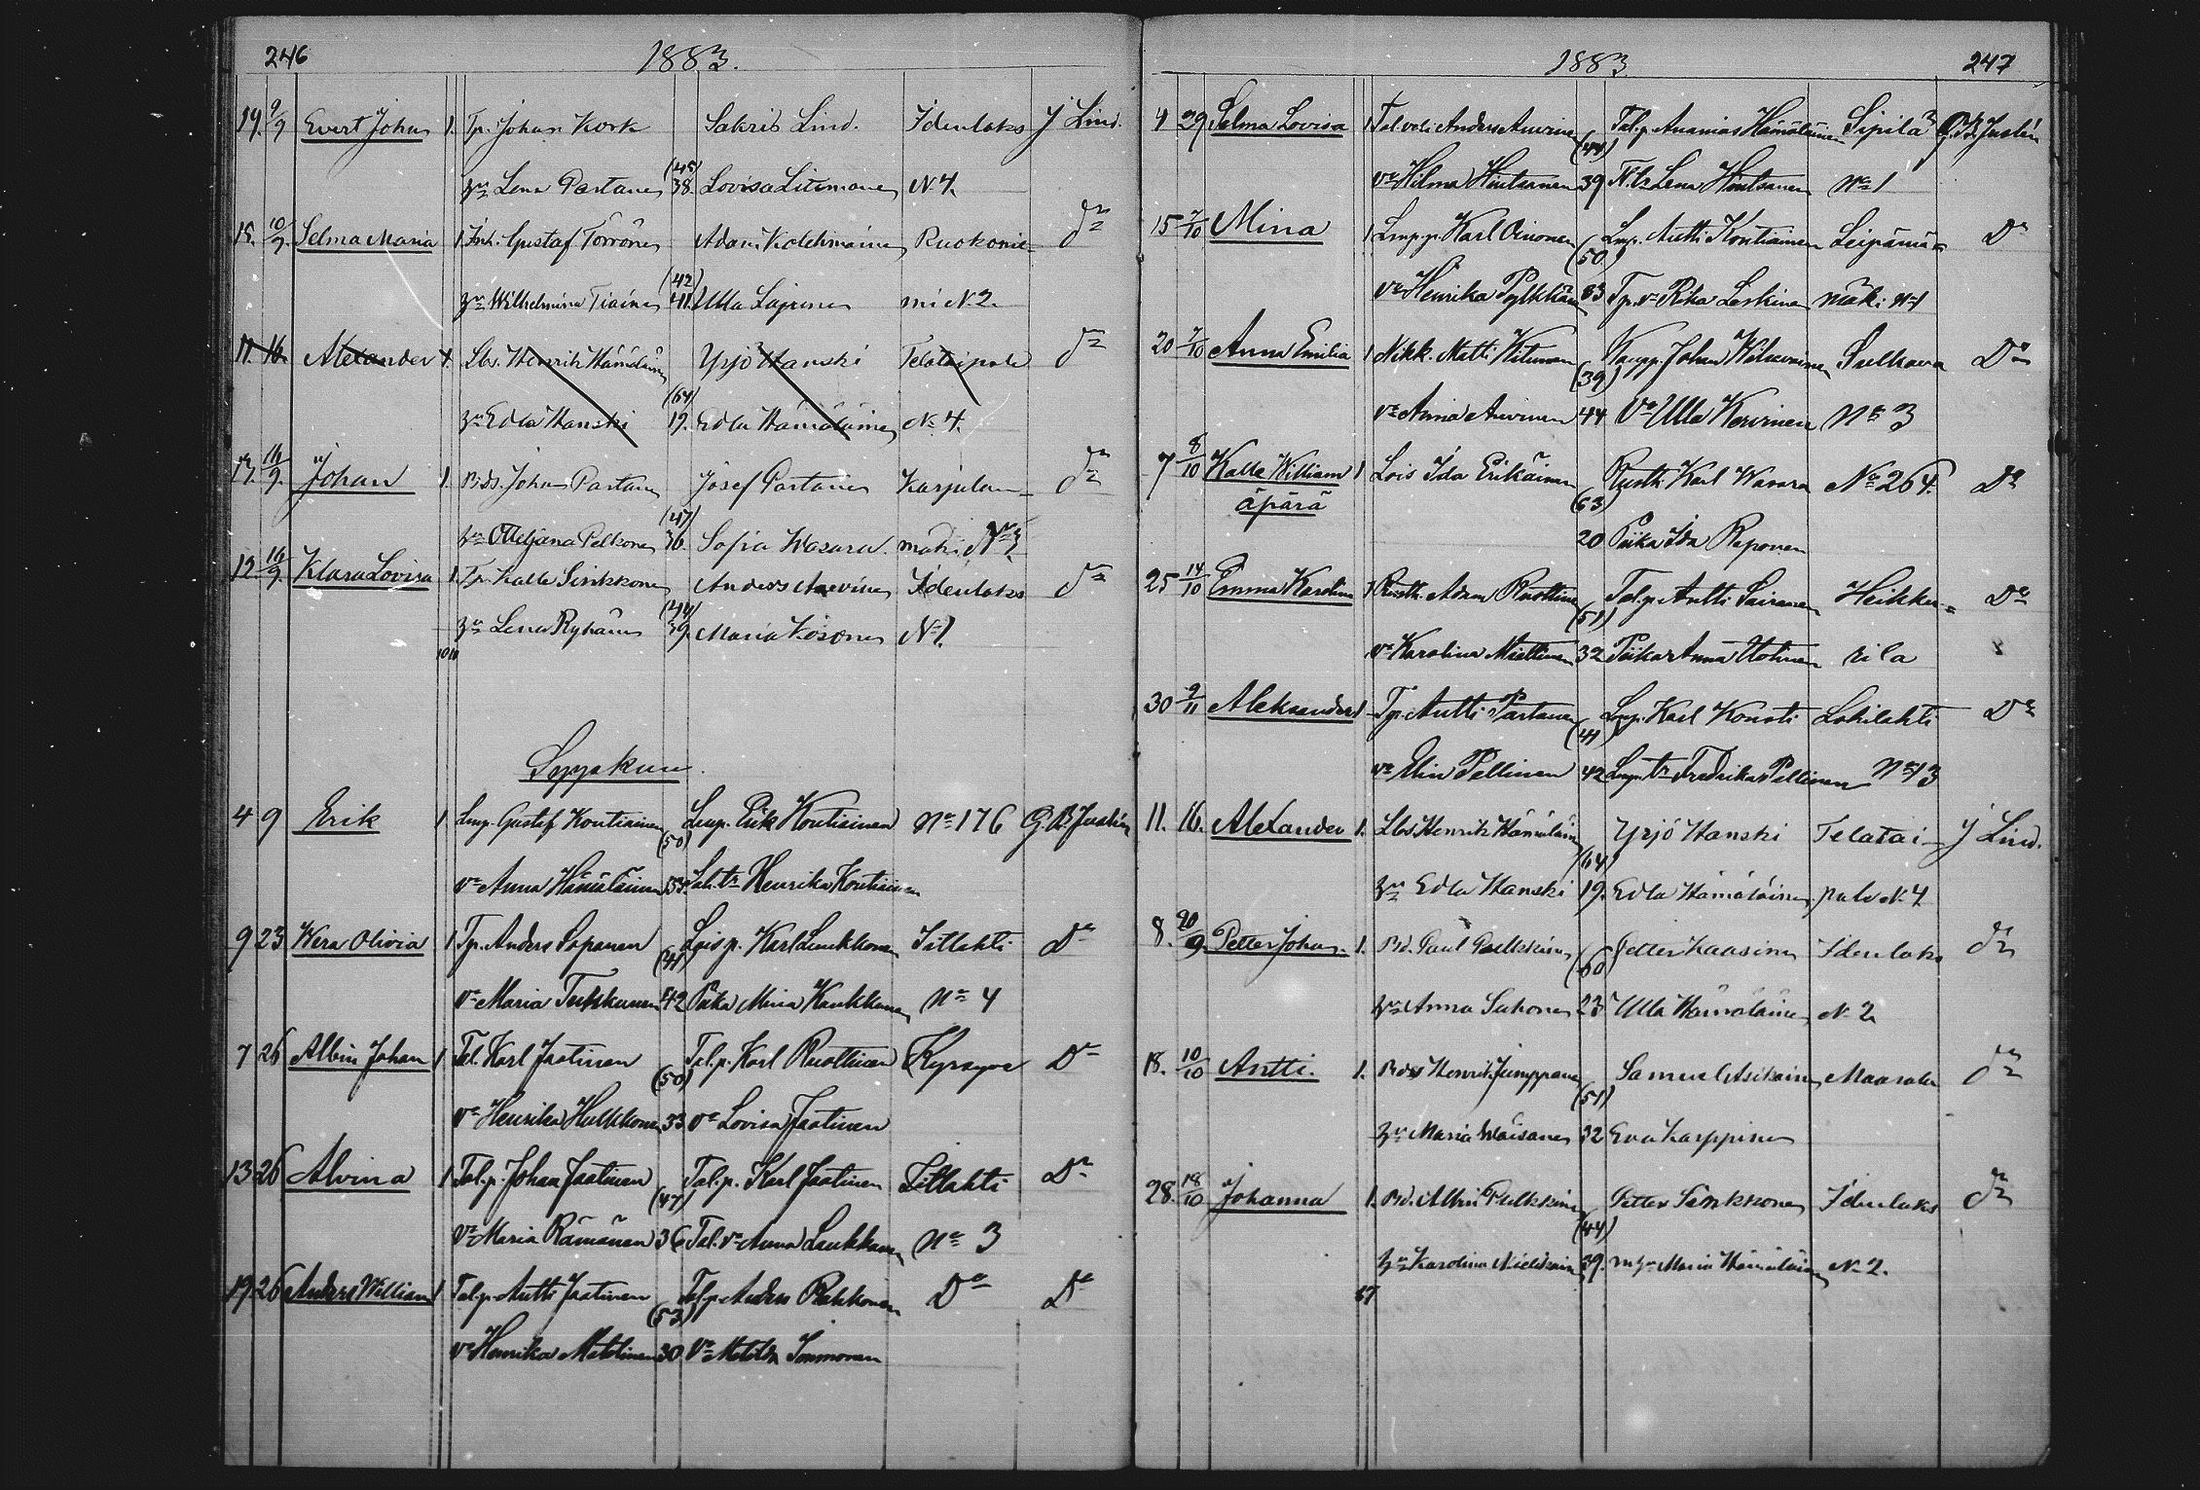 246 1883.
19. 9/9 Evert Johan 1. Tp. Johan Kork Sakris Lind. Idenlaks J Lind.
Lena Partanen (45) 38. Lovisa Litmanen N 4.
18. 10/9 Selma Maria 1 Inh. Gustaf Törrönen Adam Kolehmainen Ruokonie- do
Wilhelmina Tiainen (42) 41. Ulla Laurinen mi N 2.
11. 16. Alexander 1. Lbs. Henrik Hämäläinen Yrjö Hanski Telataipale do
Edla Hanski (64) 19. Edla Hämäläinen No 4.
13. 16/9 Johan 1. Bds. Johan Partanen Josef Partanen Karjulan- do
Ottiljana Pelkonen (47) 36. Sofia Wasara. mäki No 3.
12. 16/9 Klara Lovisa 1. Tp. Kalle Sinkkonen Anders Auvinen Idenlaks do
Lena Ryhänen (44) 39. Maria Kosonen No 1.
Syyskuu.
4 9 Erik 1. Lmp. Gustaf Kontiainen Lmp. Erik Kontiainen No 176 G B Justén
Vo Anna Hämäläinen (50) Henrika Kontiainen
9 23 Wera Olivia 1 Tp. Anders Sopanen Loisp. Karl Laukkanen Iitlahti Do
Vo Maria Turkkunen (41) 42 Piika Mina Kaukkanen No 4
7 26 Albin Johan 1 Tal. Karl Jaatinen Tal.p. Karl Ruottinen Do
Vo Henrika Hulkkonen (50) 33 Vo Lovisa Jaatinen
13 26 Alvina 1 Tal.p. Johan Jaatinen Tal.p. Karl Jaatinen Iitlahti Do
Vo Maria Rämänen (47) 36 Tal. Vo Anna Laukkanen No 3
19 26 Anders William 1 Tal.p. Antti Jaatinen Tal.p. Anders Pakkonen Do Do
Vo Henrika Matilainen (53) 30 Vo Matilda Immonen
1883 247
4 29 Selma Lovisa 1 Tal. veli Anders Auvinen Tal.p. Ananias Hämäläinen Sipilä G. B. Justén
Vo Hilma Hintsanen (44) 39 Lena Hintsanen No 1
15 7/10 Mina 1 Lmp. p. Karl Oinonen Lmp. Antti Kontiainen Leipämä= Do
Vo Henrika Pylkkänen (50) 33 Tp. vo Rika Laskinen mäki No 1
20 7/10 Anna Emilia 1 Nikk. Matti Kitunen Kaupp. Johan Sulkava Do
Vo Anna Auvinen (39) 44 Vo Ulla Kervinen No 3
7 8/10 Kalle William 1 Lois Ida Erikäinen Rusth. Karl Wasara No 264. Do
äpärä (63)
20 Piika Ida Reponen
25 14/10 Emma Karolina 1 Rusth. Adam Ruottinen Tal.p. Antti Sairanen Heikku= Do
Vo Karolina Miettinen (51) 32 Piika Anna Utotinen rila
30 9/11 Aleksander 1 Tp. Antti Partanen Lmp. Karl Konsti Lohilahti Do
Vo Elin Pellinen (41) 42 Lmp. tr Fredrika Pellinen No 13
11. 16. Alexander 1. Lbs. Henrik Hämäläinen Yrjö Hanski Telatai- J Lind.
Edla Hanski (64) 19. Edla Hämäläinen pale N 4
8. 20/9 Petter Johan. 1. Bd. Paul Pulkkinen Petter Kaasinen Idenlaks do
Anna Suhonen (60) 23 Ulla Hämäläinen N 2
18. 10/10 Antti. 1. Bds Henrik Jumppanen Samuel Asikainen Maarala do
Maria Waisanen (51) 32 Eva Karppinen
28. 18/10 Johanna 1. Bd. Albin Pulkkinen Petter Sinkkonen Idenlaks do
Karolina Nielikäinen (44) 39. Maria Hämäläinen N 2.
67